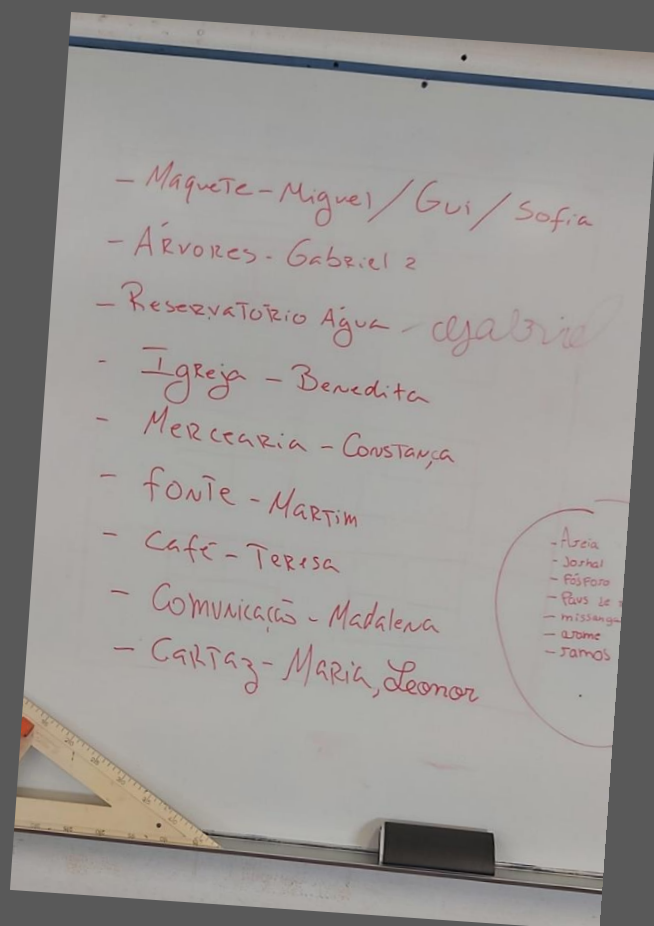 - Maquete - Miguel / Gui / Sofia
- Árvores - Gabriel 2
- Reservatório Água - Gabriel
- Igreja - Benedita
- Mercearia - Constança
- fonte - Martim
- Café - Teresa
- Comunicação - Madalena
- Cartaz - Maria, Leonor
- Areia
- Jornal
- fósforo
- Paus de
- missanga
- arame
- ramos